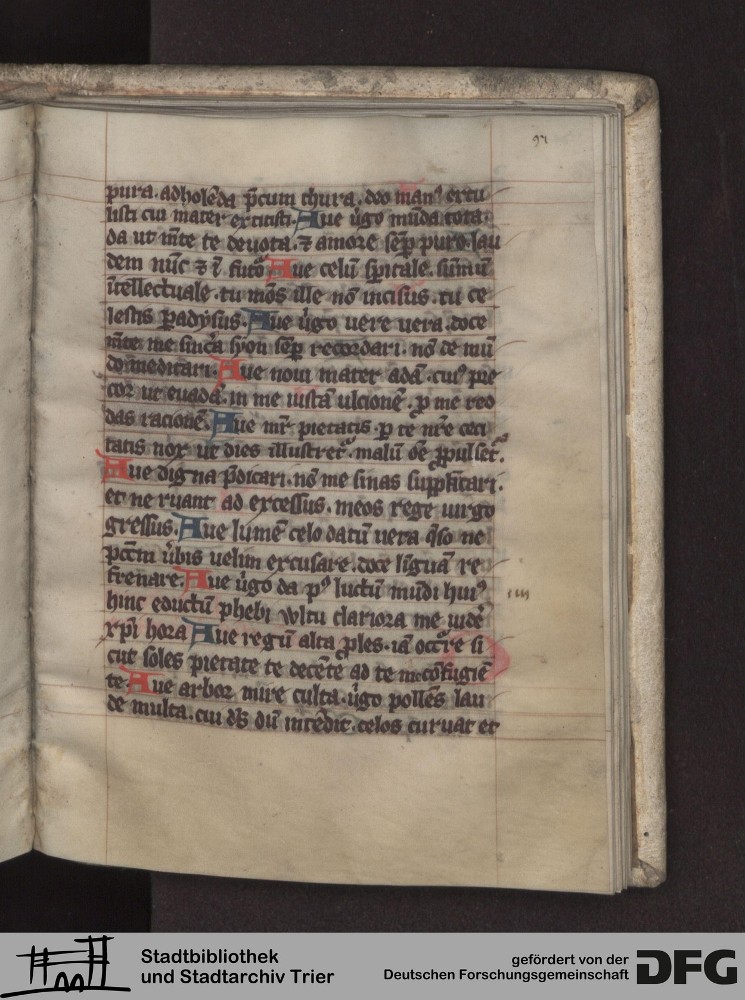 97
pura. adholēda p̄cum thura. deo man⁹ excu
listi cui mater extitisti. Aue ūgo mūda tota
da ut mēte te deuota. ⁊ amore sēp puro. lau
dem nūc ⁊ ī futo Aue celū spirale. sūmū
ītellectuale. tu mōs ille nō incisus. tu ce
lestis padysus. Aue ūgo uere uera. doce
mēte me sincā syon sēp recordari. nō de mū
do meditari. Aue noui mater adā. cui⁹ pre
cor ut euadā. in me iustā ulcionē. p me reo
das racionē. Aue mr̄ pietatis. p te nr̄e ceci
tatis nox ut dies illustret᷑. malū oē ppulset᷑.
Aue digna p̄dicari. nō me sinas supplātari.
et ne ruant ad excessus. meos rege uirgo
gressus. Aue lumē celo datū uera q̄so ne
pctm̄ ūbis uelim excusare. doce līguā re
frenare. Aue ūgo da p⁹ luctū mūdi hui⁹
hinc eductū phebi wltu clariora me uidē
xpī hora Aue regū alta ples. iā occr̄e si
cut soles pietate te decētē ad te me cōfugiē
te. Aue arbor mire culta. ūgo pollēs lau
de multa. cui dūs dū intēdit. celos curuat et
Stadtbibliothek
und Stadtarchiv Trier
gefördert von der
Deutschen Forschungsgemeinschaft
DFG